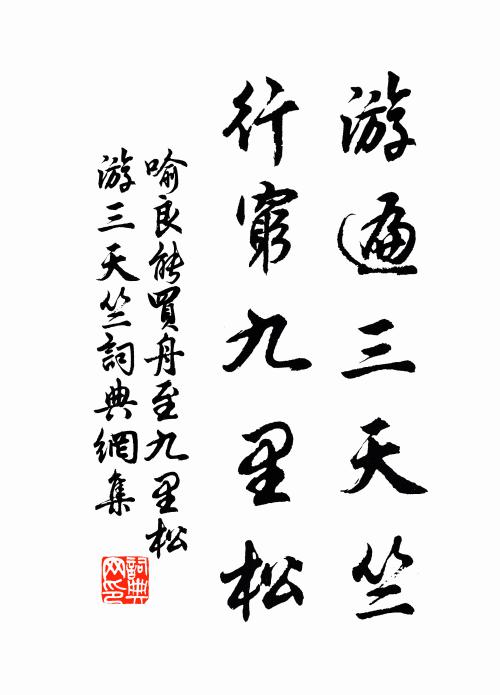 游遍三天竺
行窮九里松
喻良能買舟至九里松
游三天竺詞典網集
詞典網印